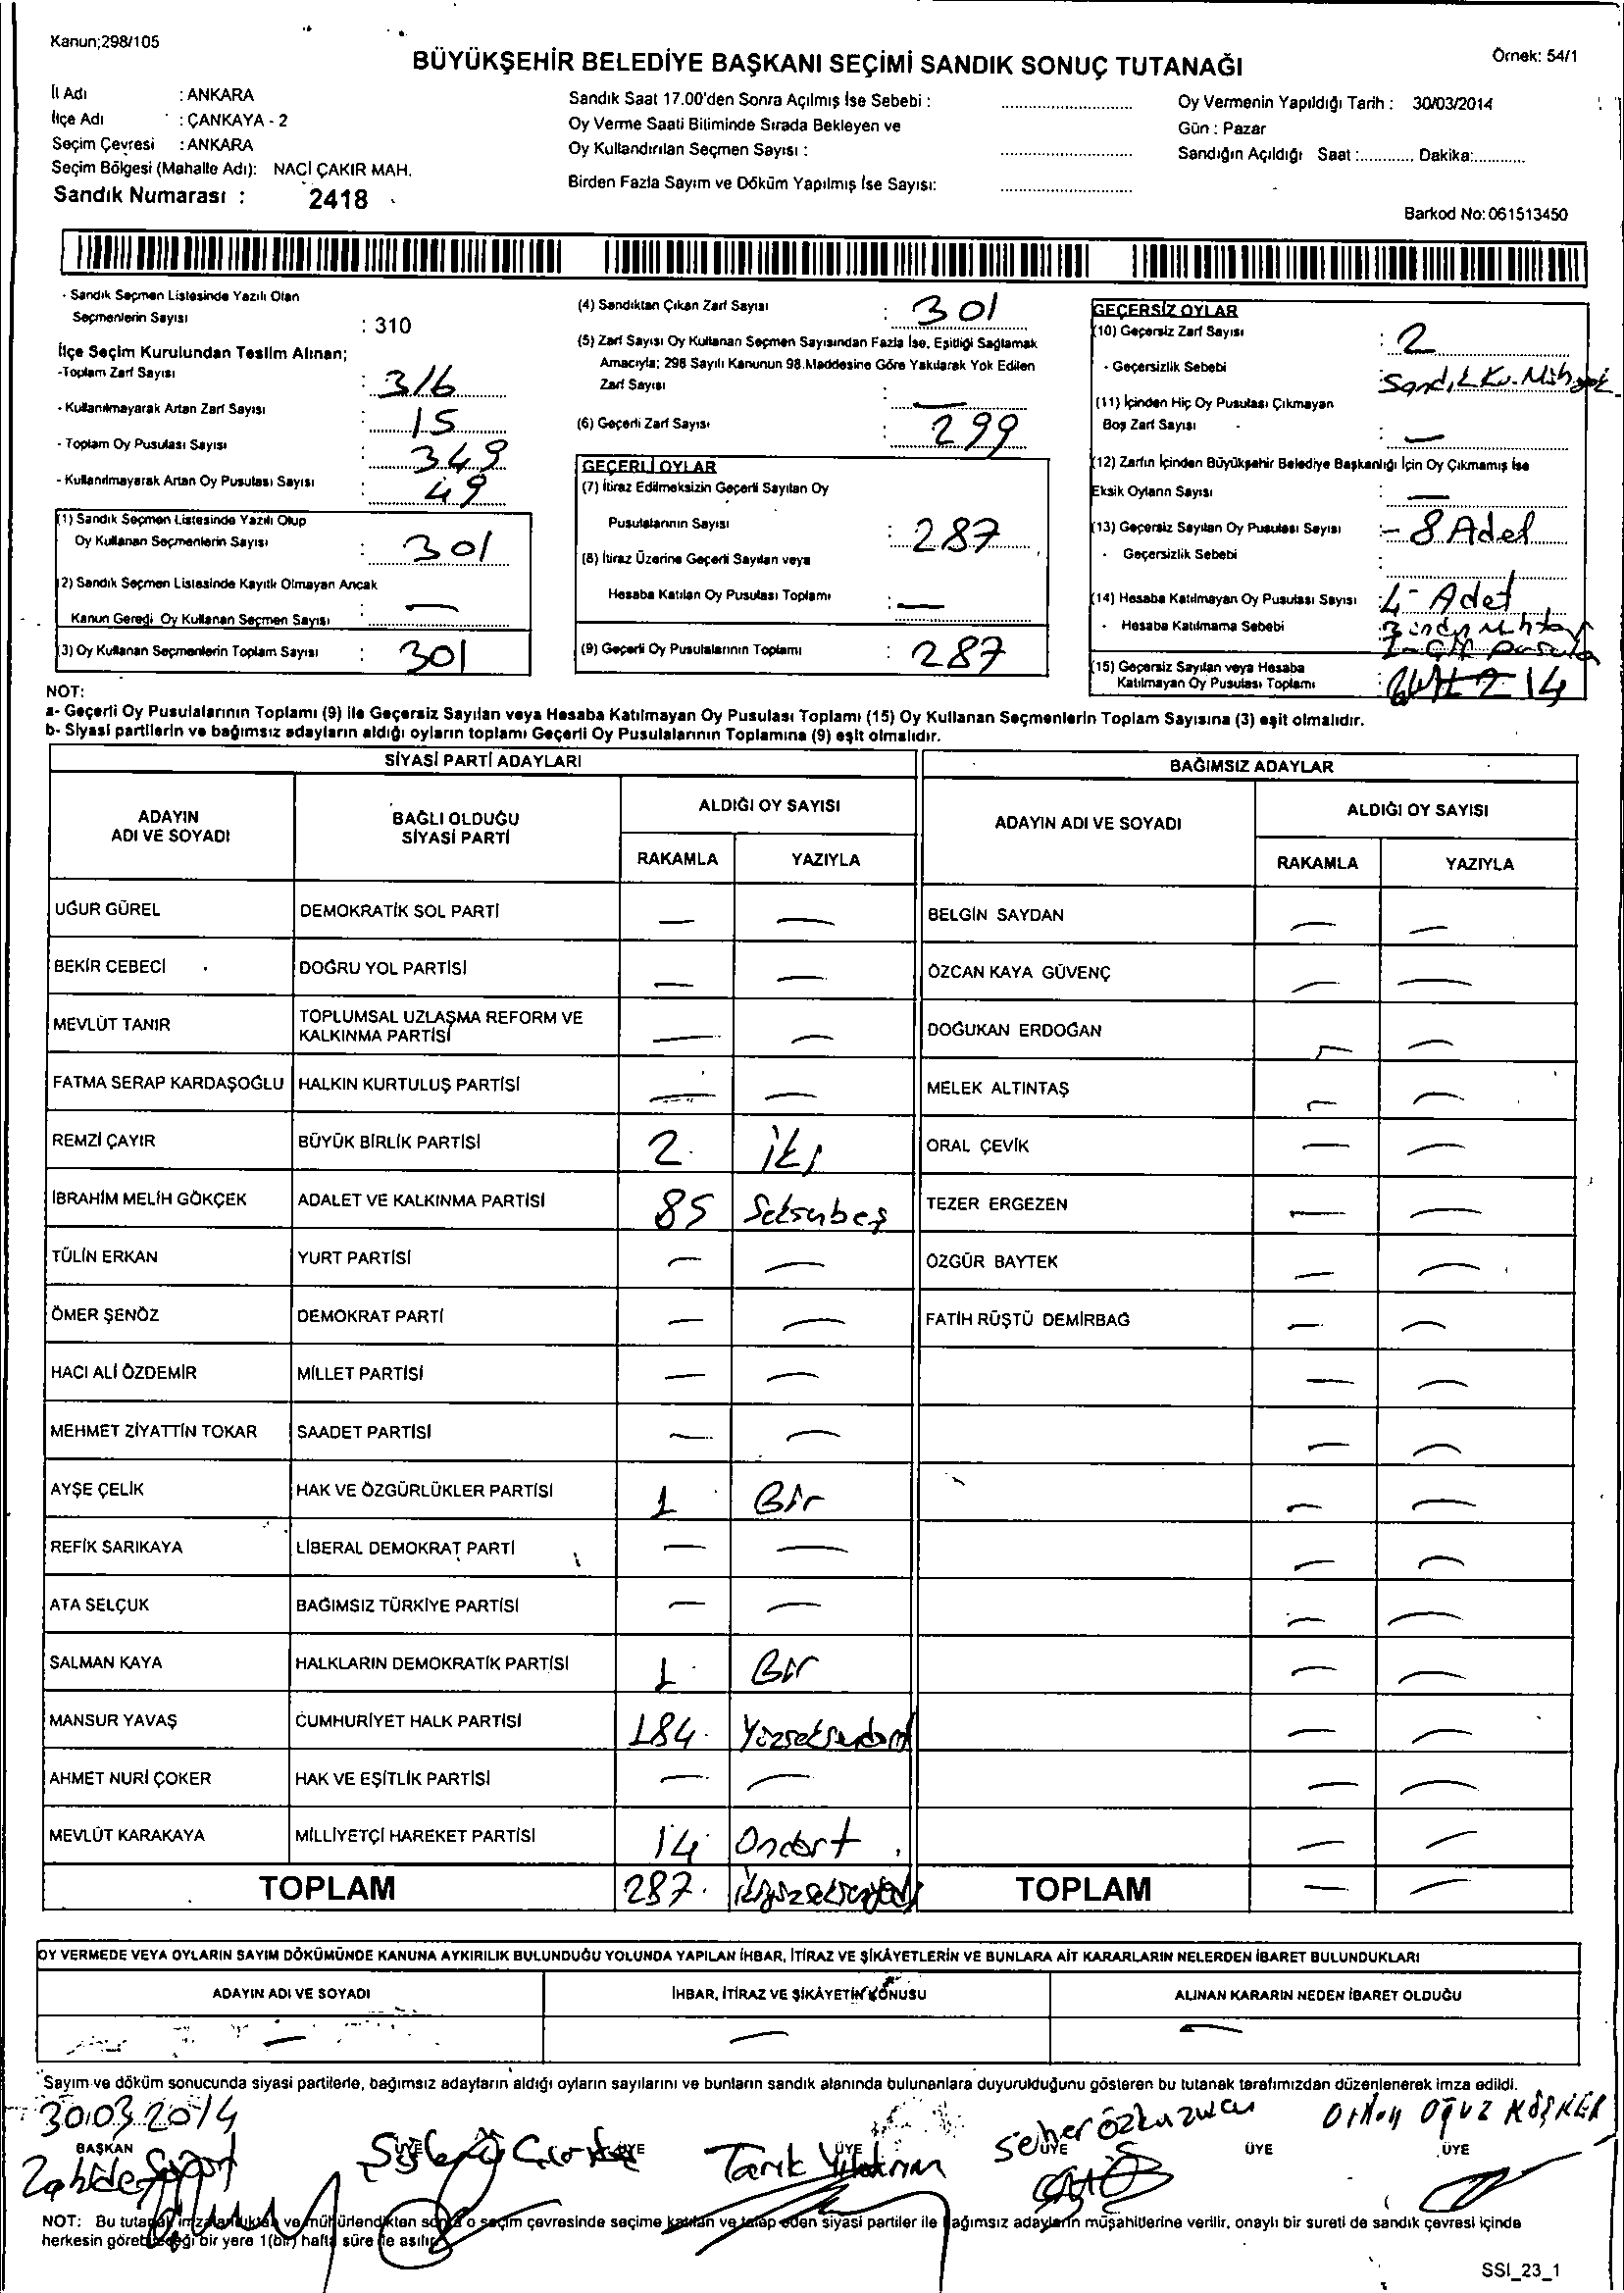 Kanun;298/105
BÜYÜKŞEHİR BELEDİYE BAŞKANI SEÇİMİ SANDIK SONUÇ TUTANAĞI
Örnek: 54/1
İl Adı : ANKARA
İlçe Adı : ÇANKAYA - 2
Seçim Çevresi : ANKARA
Seçim Bölgesi (Mahalle Adı): NACİ ÇAKIR MAH.
Sandık Numarası : 2418
Sandık Saat 17.00'den Sonra Açılmış İse Sebebi :
Oy Verme Saati Bitiminde Sırada Bekleyen ve
Oy Kullandırılan Seçmen Sayısı :
Birden Fazla Sayım ve Döküm Yapılmış İse Sayısı:
Oy Vermenin Yapıldığı Tarih : 30/03/2014
Gün : Pazar
Sandığın Açıldığı Saat :............ Dakika:............
Barkod No: 061513450
- Sandık Seçmen Listesinde Yazılı Olan
Seçmenlerin Sayısı : 310
İlçe Seçim Kurulundan Teslim Alınan;
-Toplam Zarf Sayısı : 316
- Kullanılmayarak Artan Zarf Sayısı : 15
- Toplam Oy Pusulası Sayısı : 349
- Kullanılmayarak Artan Oy Pusulası Sayısı : 49
(1) Sandık Seçmen Listesinde Yazılı Olup
Oy Kullanan Seçmenlerin Sayısı : 301
(2) Sandık Seçmen Listesinde Kayıtlı Olmayan Ancak
Kanun Gereği Oy Kullanan Seçmen Sayısı : —
(3) Oy Kullanan Seçmenlerin Toplam Sayısı : 301
(4) Sandıktan Çıkan Zarf Sayısı : 301
(5) Zarf Sayısı Oy Kullanan Seçmen Sayısından Fazla İse, Eşitliği Sağlamak
Amacıyla; 298 Sayılı Kanunun 98.Maddesine Göre Yakılarak Yok Edilen
Zarf Sayısı : —
(6) Geçerli Zarf Sayısı : 299
GEÇERLİ OYLAR
(7) İtiraz Edilmeksizin Geçerli Sayılan Oy
Pusulalarının Sayısı : 287
(8) İtiraz Üzerine Geçerli Sayılan veya
Hesaba Katılan Oy Pusulası Toplamı : —
(9) Geçerli Oy Pusulalarının Toplamı : 287
GEÇERSİZ OYLAR
(10) Geçersiz Zarf Sayısı : 2
- Geçersizlik Sebebi
(11) İçinden Hiç Oy Pusulası Çıkmayan
Boş Zarf Sayısı : —
(12) Zarfın İçinden Büyükşehir Belediye Başkanlığı İçin Oy Çıkmamış İse
Eksik Oyların Sayısı : —
(13) Geçersiz Sayılan Oy Pusulası Sayısı : - 8 Adet
- Geçersizlik Sebebi :
(14) Hesaba Katılmayan Oy Pusulası Sayısı : 4 - Adet
- Hesaba Katılmama Sebebi
(15) Geçersiz Sayılan veya Hesaba
Katılmayan Oy Pusulası Toplamı : 14
NOT:
a- Geçerli Oy Pusulalarının Toplamı (9) ile Geçersiz Sayılan veya Hesaba Katılmayan Oy Pusulası Toplamı (15) Oy Kullanan Seçmenlerin Toplam Sayısına (3) eşit olmalıdır.
b- Siyasi partilerin ve bağımsız adayların aldığı oyların toplamı Geçerli Oy Pusulalarının Toplamına (9) eşit olmalıdır.
SİYASİ PARTİ ADAYLARI BAĞIMSIZ ADAYLAR
ADAYIN ADI VE SOYADI BAĞLI OLDUĞU SİYASİ PARTİ ALDIĞI OY SAYISI ADAYIN ADI VE SOYADI ALDIĞI OY SAYISI
RAKAMLA YAZIYLA RAKAMLA YAZIYLA
UĞUR GÜREL DEMOKRATİK SOL PARTİ — — BELGİN SAYDAN — —
BEKİR CEBECİ DOĞRU YOL PARTİSİ — — ÖZCAN KAYA GÜVENÇ — —
MEVLÜT TANIR TOPLUMSAL UZLAŞMA REFORM VE KALKINMA PARTİSİ — — DOĞUKAN ERDOĞAN — —
FATMA SERAP KARDAŞOĞLU HALKIN KURTULUŞ PARTİSİ — — MELEK ALTINTAŞ — —
REMZİ ÇAYIR BÜYÜK BİRLİK PARTİSİ 2 iki ORAL ÇEVİK — —
İBRAHİM MELİH GÖKÇEK ADALET VE KALKINMA PARTİSİ 85 Seksenbeş TEZER ERGEZEN — —
TÜLİN ERKAN YURT PARTİSİ — — ÖZGÜR BAYTEK — —
ÖMER ŞENÖZ DEMOKRAT PARTİ — — FATİH RÜŞTÜ DEMİRBAĞ — —
HACI ALİ ÖZDEMİR MİLLET PARTİSİ — — — —
MEHMET ZİYATTİN TOKAR SAADET PARTİSİ — — — —
AYŞE ÇELİK HAK VE ÖZGÜRLÜKLER PARTİSİ 1 Bir — —
REFİK SARIKAYA LİBERAL DEMOKRAT PARTİ — — — —
ATA SELÇUK BAĞIMSIZ TÜRKİYE PARTİSİ — — — —
SALMAN KAYA HALKLARIN DEMOKRATİK PARTİSİ 1 Bir — —
MANSUR YAVAŞ CUMHURİYET HALK PARTİSİ 184 — —
AHMET NURİ ÇOKER HAK VE EŞİTLİK PARTİSİ — — — —
MEVLÜT KARAKAYA MİLLİYETÇİ HAREKET PARTİSİ 14 Ondört — —
TOPLAM 287 TOPLAM — —
OY VERMEDE VEYA OYLARIN SAYIM DÖKÜMÜNDE KANUNA AYKIRILIK BULUNDUĞU YOLUNDA YAPILAN İHBAR, İTİRAZ VE ŞİKÂYETLERİN VE BUNLARA AİT KARARLARIN NELERDEN İBARET BULUNDUKLARI
ADAYIN ADI VE SOYADI İHBAR, İTİRAZ VE ŞİKÂYETİN KONUSU ALINAN KARARIN NEDEN İBARET OLDUĞU
— — —
Sayım ve döküm sonucunda siyasi partilerle, bağımsız adayların aldığı oyların sayılarını ve bunların sandık alanında bulunanlara duyurulduğunu gösteren bu tutanak tarafımızdan düzenlenerek imza edildi.
30.03.2014
BAŞKAN ÜYE ÜYE ÜYE ÜYE ÜYE ÜYE
Tarık Yıldırım Seher Özkuzucu
NOT: Bu tutanak imzalandıktan ve mühürlendikten sonra o seçim çevresinde seçime katılan ve talep eden siyasi partiler ile bağımsız adayların müşahitlerine verilir, onaylı bir sureti de sandık çevresi içinde
herkesin görebileceği bir yere 1(bir) hafta süre ile asılır.
SSI_23_1